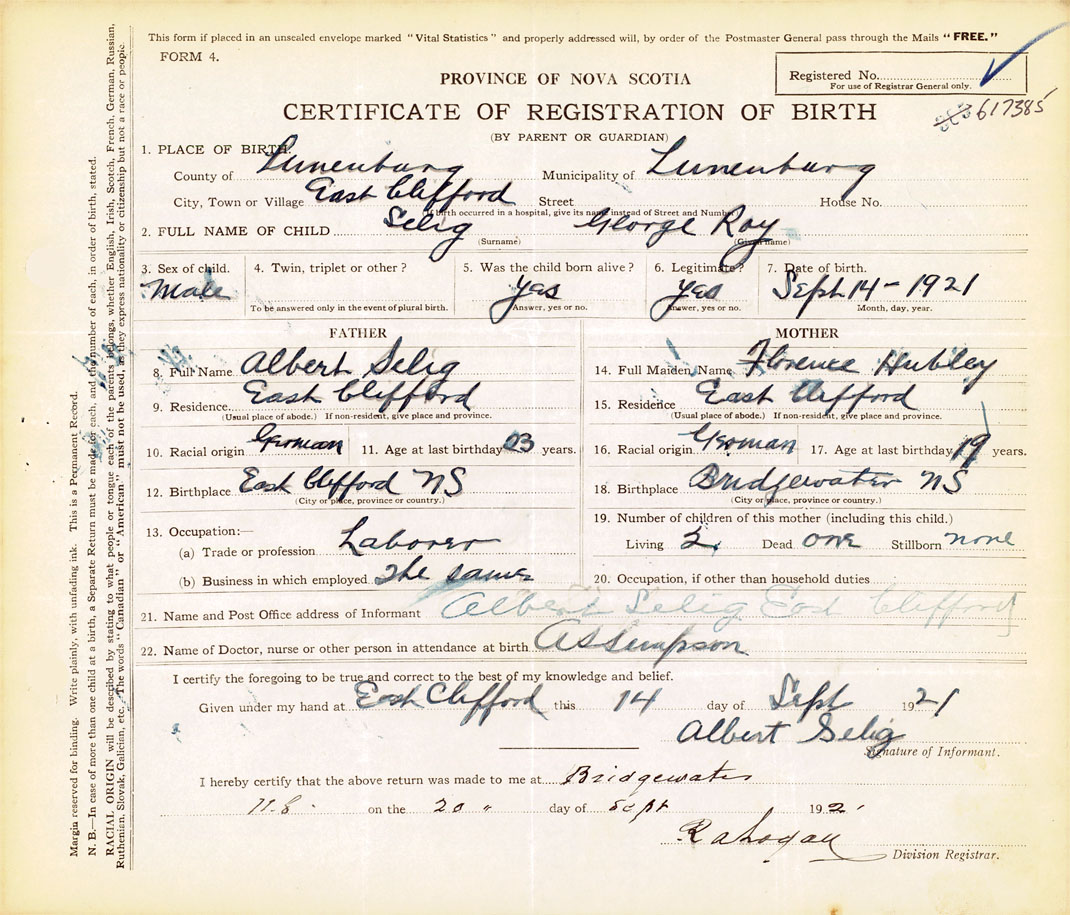 This form if placed in an unsealed envelope marked "Vital Statistics" and properly addressed will, by order of the Postmaster General pass through the Mails "FREE."
FORM 4.
PROVINCE OF NOVA SCOTIA
Registered No.
For use of Registrar General only.
CERTIFICATE OF REGISTRATION OF BIRTH
617385
(BY PARENT OR GUARDIAN)
1. PLACE OF BIRTH:
County of Lunenburg Municipality of Lunenburg
City, Town or Village East Clifford Street House No.
(If birth occurred in a hospital, give its name instead of Street and Number)
2. FULL NAME OF CHILD Selig George Roy
(Surname) (Given name)
3. Sex of child. 4. Twin, triplet or other? 5. Was the child born alive? 6. Legitimate? 7. Date of birth.
Male yas yas Sept 14-1921
To be answered only in the event of plural birth. Answer, yes or no. Answer, yes or no. Month, day, year.
FATHER
8. Full Name Albert Selig
9. Residence East Clifford
(Usual place of abode.) If non-resident, give place and province.
10. Racial origin German 11. Age at last birthday 23 years.
12. Birthplace East Clifford NS
(City or place, province or country.)
13. Occupation:—
(a) Trade or profession Laborer
(b) Business in which employed The same
MOTHER
14. Full Maiden Name Florence Hubley
15. Residence East Clifford
(Usual place of abode.) If non-resident, give place and province.
16. Racial origin German 17. Age at last birthday 19 years.
18. Birthplace Bridgewater NS
(City or place, province or country.)
19. Number of children of this mother (including this child.)
Living 2 Dead one Stillborn none
20. Occupation, if other than household duties
21. Name and Post Office address of Informant Albert Selig East Clifford
22. Name of Doctor, nurse or other person in attendance at birth
I certify the foregoing to be true and correct to the best of my knowledge and belief.
Given under my hand at East Clifford this 14 day of Sept 1921
Albert Selig
Signature of Informant.
I hereby certify that the above return was made to me at Bridgewater
N.S. on the 20 " day of Sept 192
Division Registrar.
Margin reserved for binding. Write plainly, with unfading ink. This is a Permanent Record.
N. B.—In case of more than one child at a birth, a Separate Return must be made for each, and the number of each, in order of birth, stated.
RACIAL ORIGIN will be described by stating to what people or tongue each of the parents belongs, whether English, Irish, Scotch, French, German, Russian,
Ruthenian, Slovak, Galician, etc. The words "Canadian" or "American" must not be used, as they express nationality or citizenship but not a race or people.